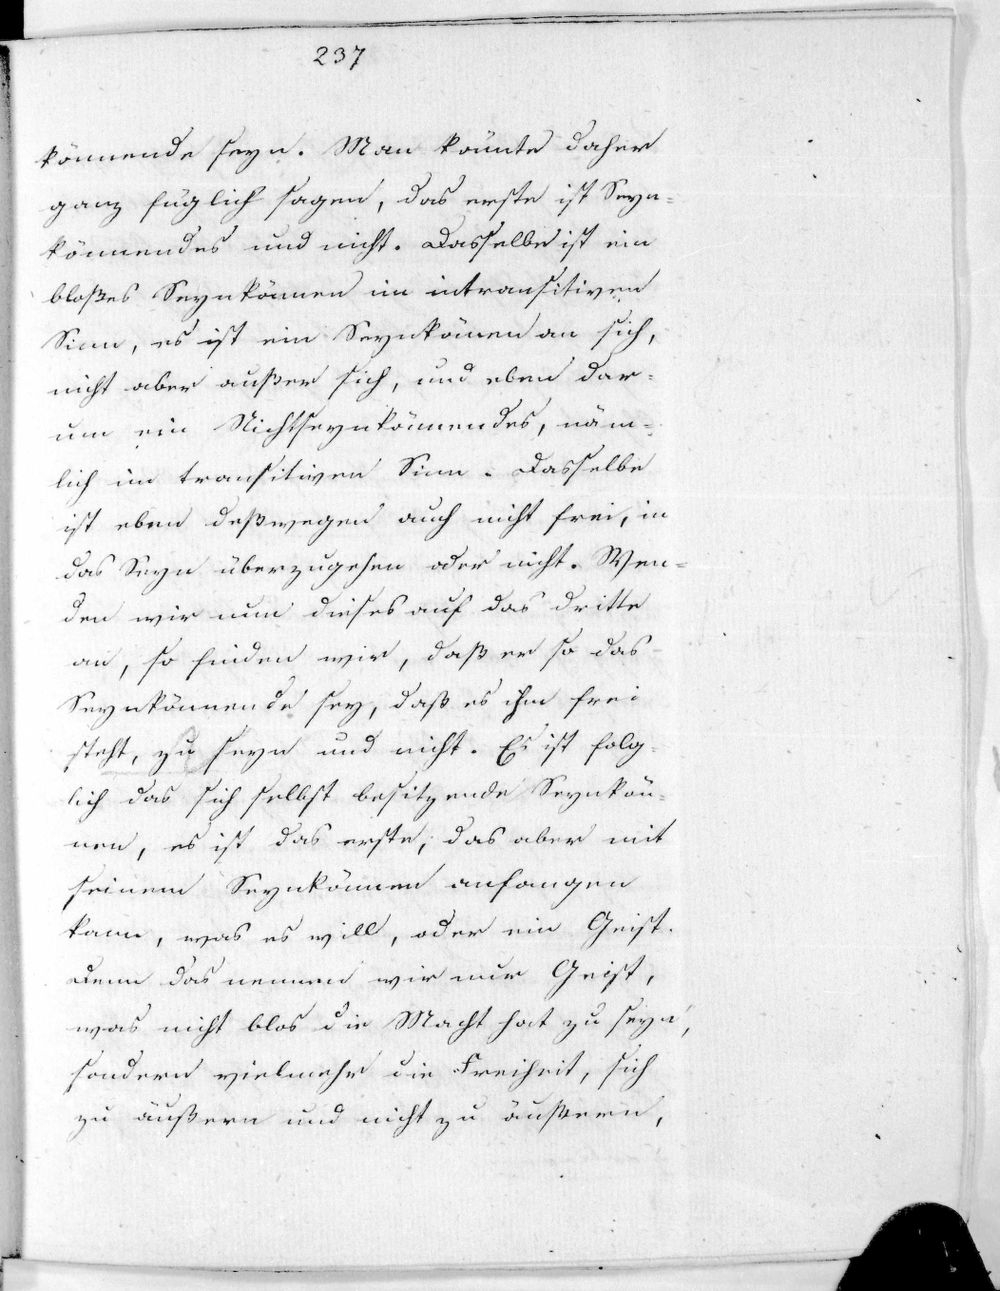 237
könnende seyn. Man könnte daher
ganz füglich sagen, das erste ist Seyn=
könnendes und nicht. Dasselbe ist ein
bloßes Seynkönnen im intransitiven
Sinn, es ist ein Seynkönnen an sich,
nicht aber außer sich, und eben dar=
um ein Nichtseynkönnendes, näm=
lich im transitiven Sinn. Dasselbe
ist eben deßwegen auch nicht frei, in
das Seyn überzugehen oder nicht. Wen=
den wir nun dieses auf das dritte
an, so finden wir, daß er so das
Seynkönnende sey, daß es ihm frei
steht, zu seyn und nicht. Es ist folg=
lich das sich selbst besitzende Seynkön=
nen, es ist das erste, das aber mit
seinem Seynkönnen anfangen
kann, was es will, oder ein Geist.
Denn das nennen wir nur Geist,
was nicht blos die Macht hat zu seyn,
sondern vielmehr die Freiheit, sich
zu äußern und nicht zu äußern,